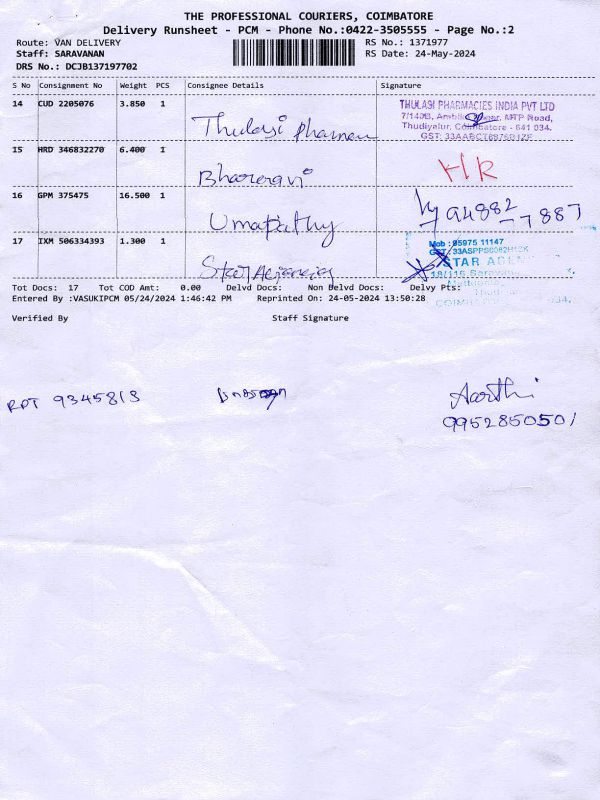 THE PROFESSIONAL COURIERS, COIMBATORE
Delivery Runsheet - PCM - Phone No.:0422-3505555 - Page No.:2
Route: VAN DELIVERY
RS No.: 1371977
Staff: SARAVANAN
RS Date: 24-May-2024
DRS No.: DCJB137197702
S No Consignment No Weight PCS Consignee Details Signature
14 CUD 2205076 3.850 1
THULASI PHARMACIES INDIA PVT LTD
MTP Road,
Thudiyalur, Coimbatore - 641 034.
Thulasi
15 HRD 346832270 6.400 1
HR
16 GPM 375475 16.500 1
Umapathy
17 IXM 506334393 1.300 1
Mob : 95975 11147
STAR
Star Agencies
Tot Docs: 17 Tot COD Amt: 0.00 Delvd Docs: Non Delvd Docs: Delvy Pts:
Entered By :VASUKIPCM 05/24/2024 1:46:42 PM Reprinted On: 24-05-2024 13:50:28
Verified By Staff Signature
RPT 9345813
Aarthi
9952850501